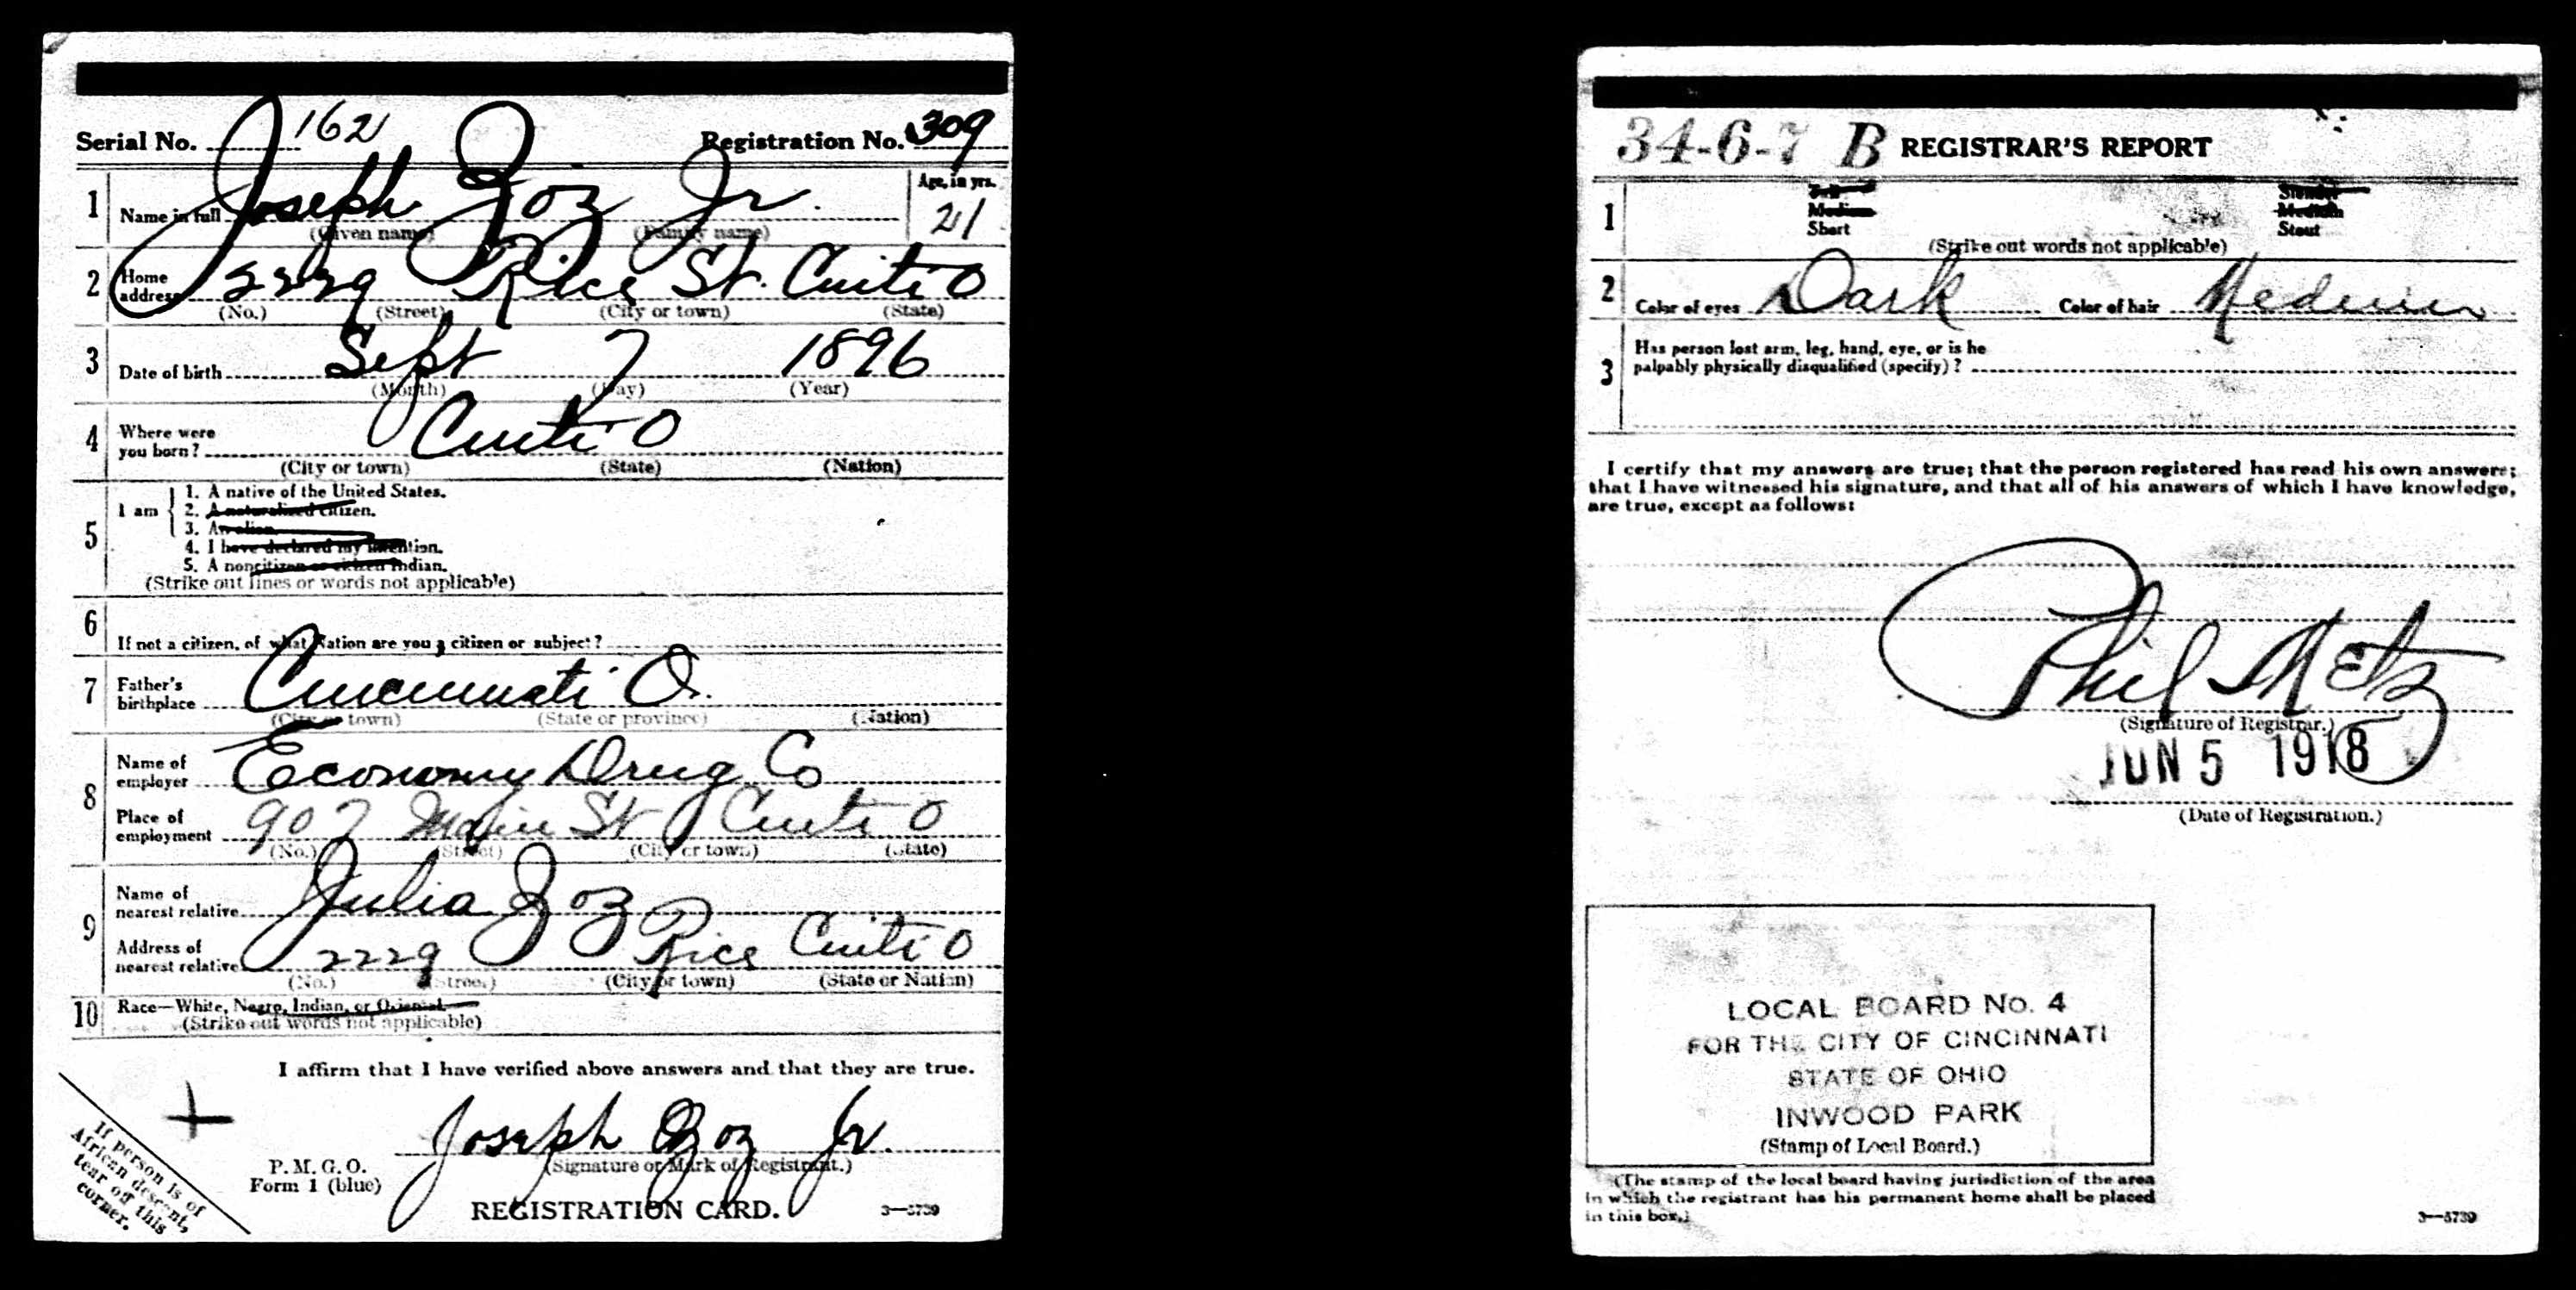 Serial No. 162 Registration No. 309
1 Name in full Joseph Zoz Jr. Age, in yrs. 21
(Given name) (Family name)
2 Home address 2229 Rice St. Cinti O
(No.) (Street) (City or town) (State)
3 Date of birth Sept 7 1896
(Month) (Day) (Year)
4 Where were you born? Cinti O
(City or town) (State) (Nation)
5 I am 1. A native of the United States.
2. A naturalized citizen.
3. An alien.
4. I have declared my intention.
5. A noncitizen or citizen Indian.
(Strike out lines or words not applicable)
6 If not a citizen, of what Nation are you a citizen or subject?
7 Father's birthplace Cincinnati O.
(City or town) (State or province) (Nation)
8 Name of employer Economy Drug Co
Place of employment 907 Main St Cinti O
(No.) (Street) (City or town) (State)
9 Name of nearest relative Julia Zoz
Address of nearest relative 2229 Rice Cinti O
(No.) (Street) (City or town) (State or Nation)
10 Race—White, Negro, Indian, or Oriental
(Strike out words not applicable)
I affirm that I have verified above answers and that they are true.
Joseph Zoz Jr.
(Signature or Mark of Registrant.)
P. M. G. O.
Form 1 (blue)
REGISTRATION CARD. 3—5739
If person is of
African descent,
tear off this
corner.
34-6-7 B REGISTRAR'S REPORT
1 Tall Slender
Medium Medium
Short Stout
(Strike out words not applicable)
2 Color of eyes Dark Color of hair Medium
3 Has person lost arm, leg, hand, eye, or is he
palpably physically disqualified (specify)?
I certify that my answers are true; that the person registered has read his own answers;
that I have witnessed his signature, and that all of his answers of which I have knowledge,
are true, except as follows:
Phil Metz
(Signature of Registrar.)
JUN 5 1918
(Date of Registration.)
LOCAL BOARD No. 4
FOR THE CITY OF CINCINNATI
STATE OF OHIO
INWOOD PARK
(Stamp of Local Board.)
(The stamp of the local board having jurisdiction of the area
in which the registrant has his permanent home shall be placed
in this box.)
3—5739